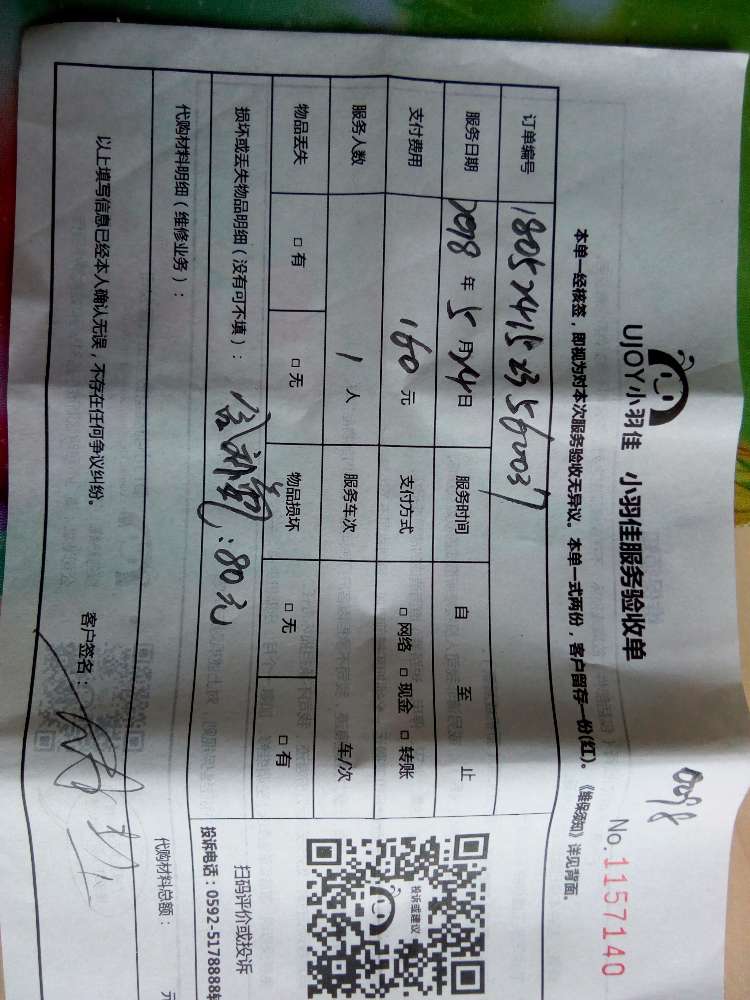 0098
UJOY小羽佳 小羽佳服务验收单 No.1157140
本单一经核签，即视为对本次服务验收无异议。本单一式两份，客户留存一份(红)。《维保须知》详见背面。
订单编号
服务日期 2018 年 5 月 24 日 服务时间 自 至 止
支付费用 160 元 支付方式 □ 网络 □ 现金 □ 转账
服务人数 1 人 服务车次 车/次
物品丢失 □ 有 □ 无 物品损坏 □ 无 □ 有
投诉或建议
UJOY
扫码评价或投诉
投诉电话：0592-5178888转
损坏或丢失物品明细（没有可不填）：
：80元
代购材料明细（维修业务）： 代购材料总额： 元
以上填写信息已经本人确认无误，不存在任何争议纠纷。 客户签名：